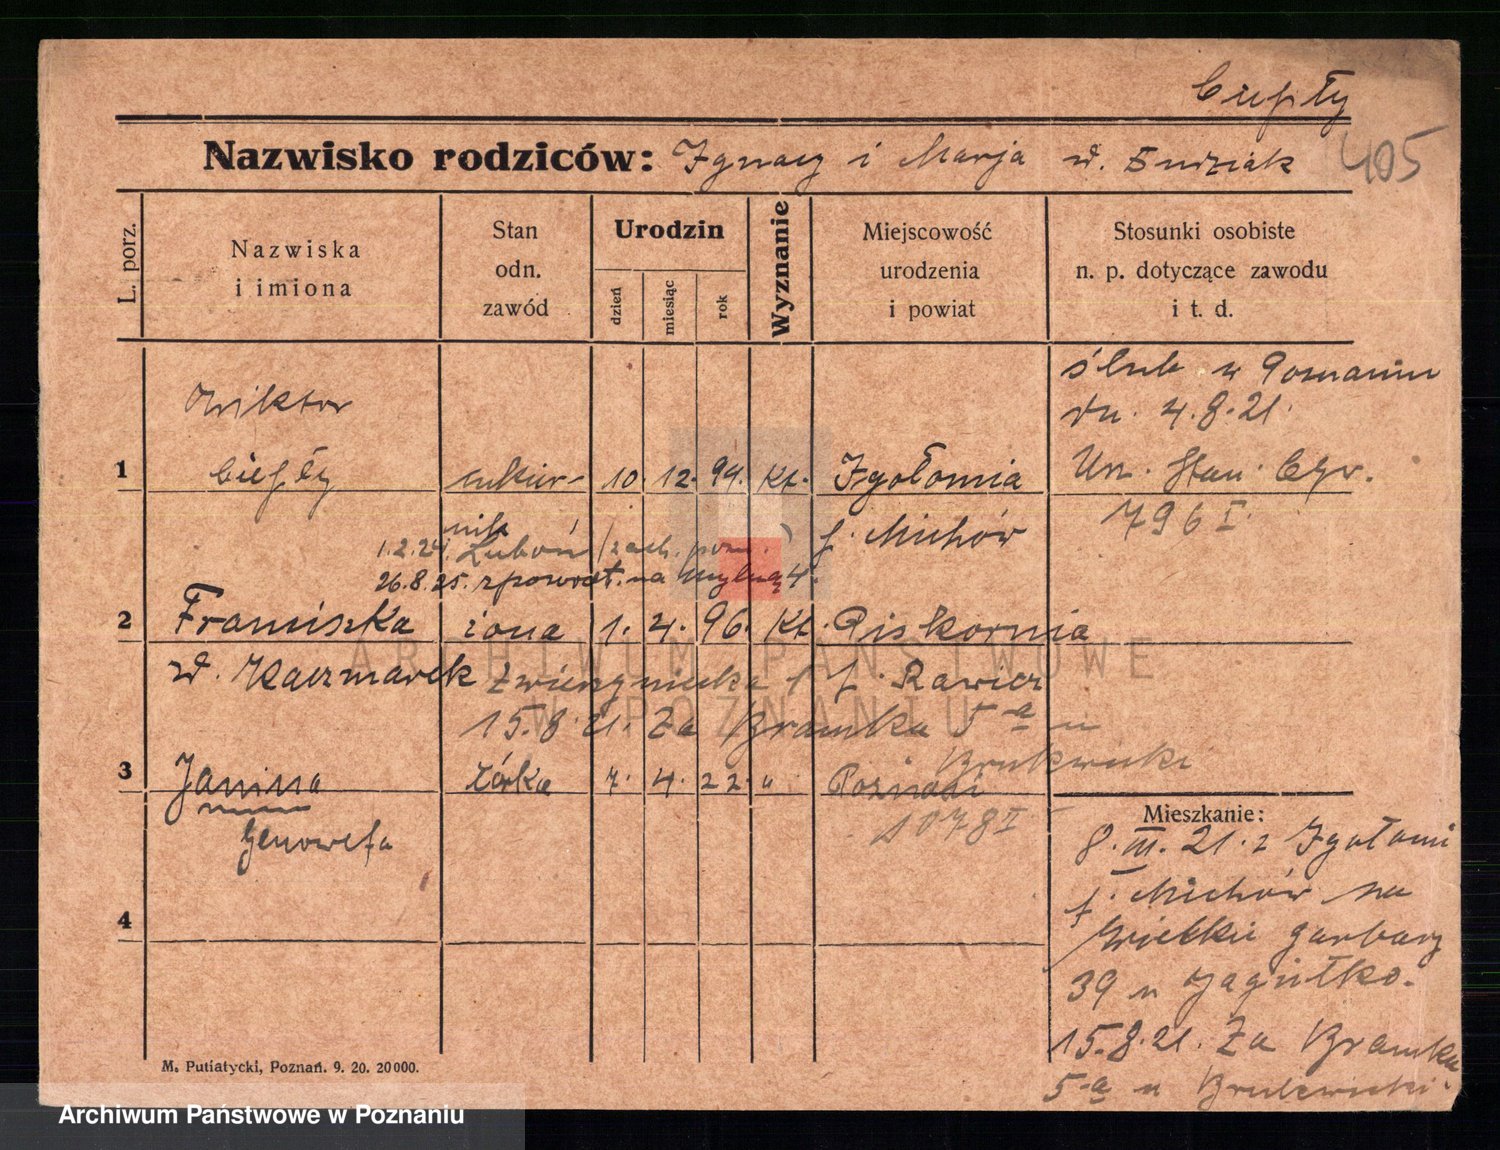 Ciepły
405
Nazwisko rodziców: Ignacy i Marja d. Budziak
L. porz.
Nazwiska
i imiona
Stan
odn.
zawód
Urodzin
dzień
miesiąc
rok
Wyznanie
Miejscowość
urodzenia
i powiat
Stosunki osobiste
n. p. dotyczące zawodu
i t. d.
ślub w Poznaniu
dn. 4.8.21.
Urz. Stan. Cyw.
796 I
1
Wiktor
Ciepły
cukier-
nik
10. 12. 94. kt.
Igołomia
p. Miechów
1.2.24. Luboń / zach. pozn.
26.8.25. zpowrot. na Mylną 4.
2
Franciszka
d. Kaczmarek
żona
1. 4. 96. kt.
Piskornia
p. Rawicz
Zwierzyniecka 1
15.8.21. Za Bramką 5a u
3
Janina
Genowefa
córka
7. 4. 22. "
Poznań
1078 I
4
Mieszkanie:
8. III. 21. z Igołomi
p. Miechów na
Wielkie Garbary
39 u
15.8.21. Za Bramką
5a u
M. Putiatycki, Poznań. 9. 20. 20000.
ARCHIWUM PAŃSTWOWE
W POZNANIU
Archiwum Państwowe w Poznaniu